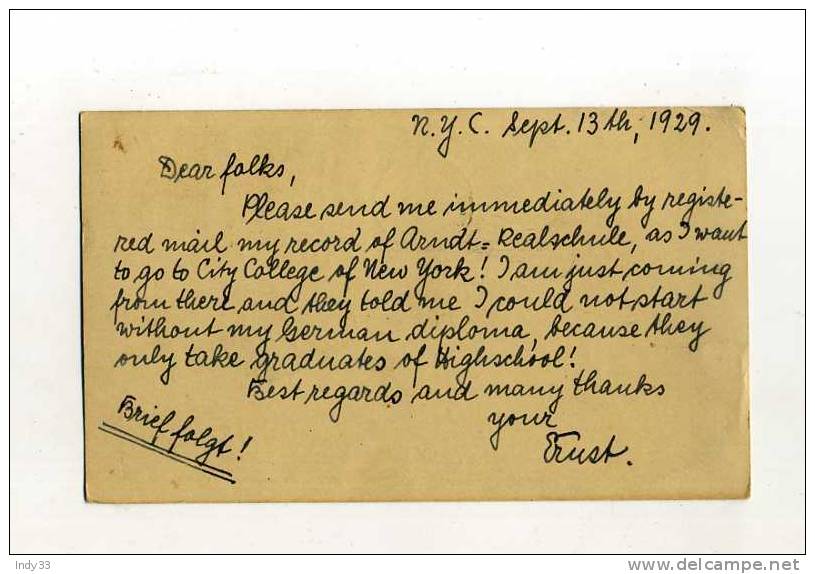 N.Y.C. Sept. 13th, 1929.
Dear folks,
Please send me immediately by registe-
red mail my record of Arndt=Realschule, as I want
to go to City College of New York! I am just coming
from there and they told me I could not start
without my German diploma, because they
only take graduates of Highschool!
Best regards and many thanks
your
Brief folgt!
Indy33
delcampe.net